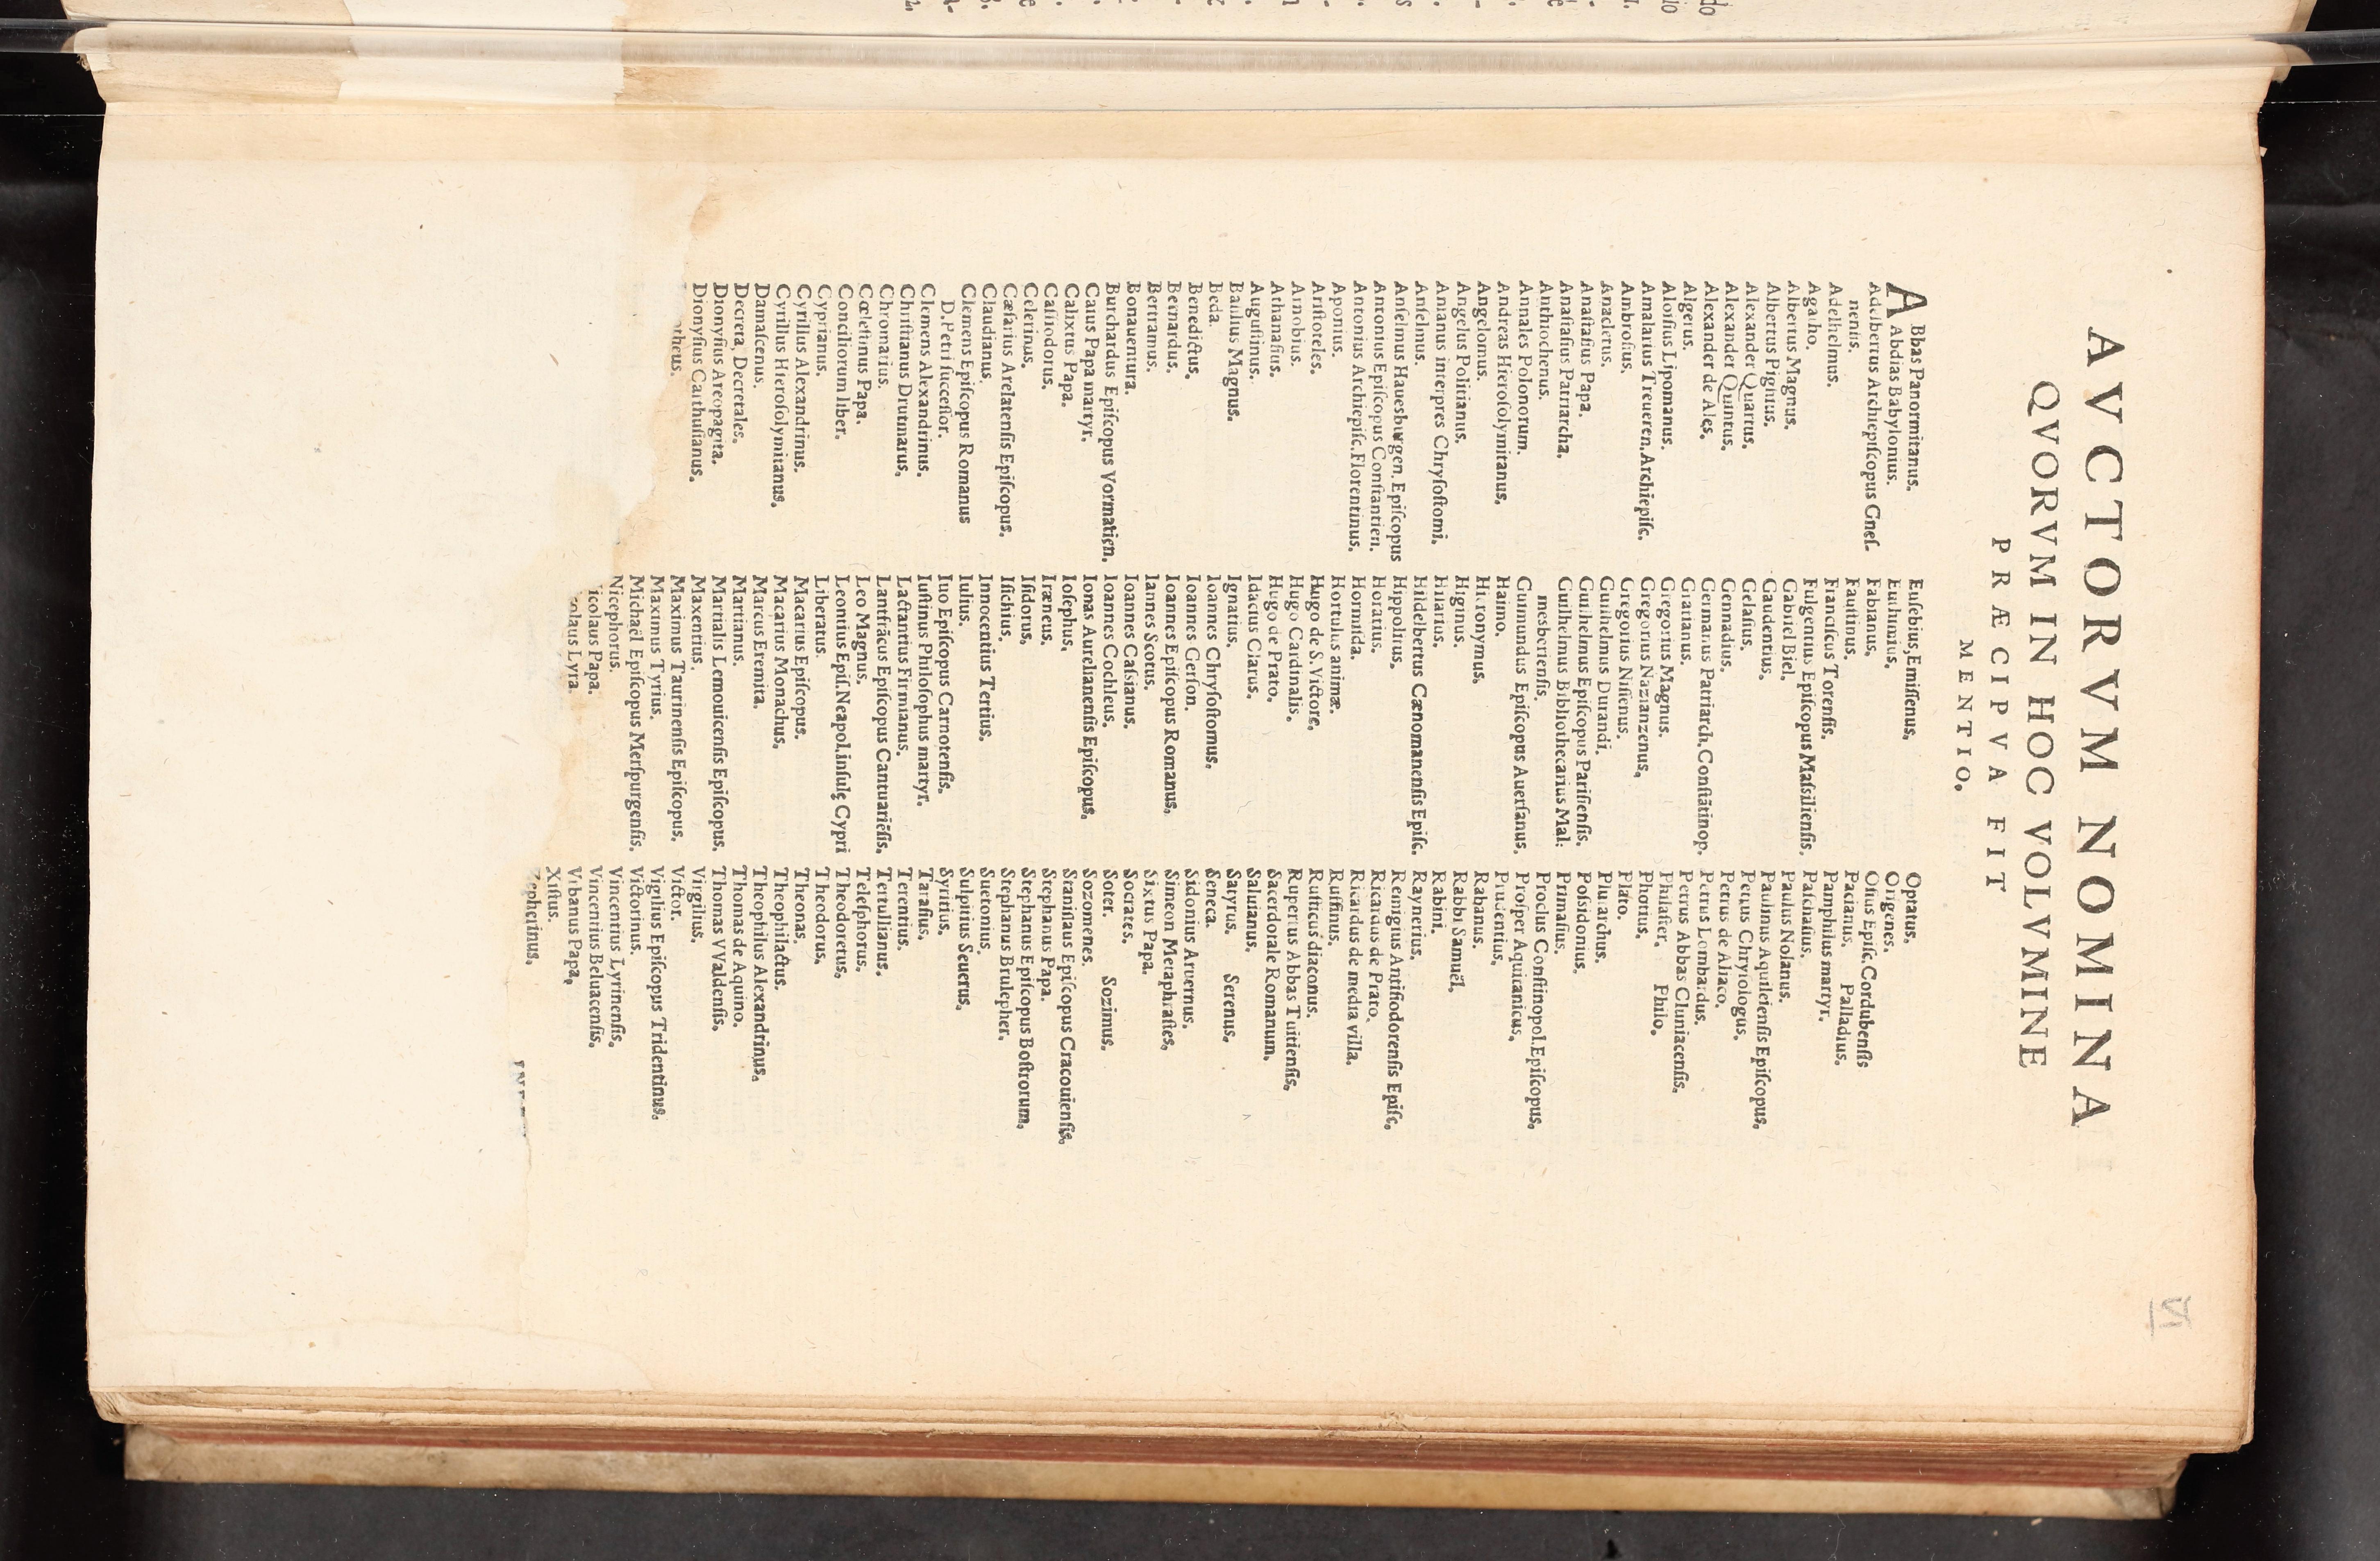 AVCTORVM NOMINA
QVORVM IN HOC VOLVMINE
PRÆCIPVA FIT
MENTIO.
ABbas Panormitanus.
Abdias Babylonius.
Adelbertus Archiepiſcopus Gneſ-
nenſis.
Adelhelmus.
Agatho.
Albertus Magnus.
Albertus Pighius.
Alexander Quartus.
Alexander Quintus.
Alexander de Ales.
Algerus.
Aloiſius Lipomanus.
Amalarius Treueren. Archiepiſc.
Ambroſius.
Anacletus.
Anaſtaſius Papa.
Anaſtaſius Patriarcha.
Anthiochenus.
Annales Polonorum.
Andreas Hieroſolymitanus.
Angelomus.
Angelus Politianus.
Anianus interpres Chryſoſtomi.
Anſelmus.
Anſelmus Hauesburgen. Epiſcopus
Antonius Epiſcopus Conſtantien.
Antonius Archiepiſc. Florentinus.
Aponius.
Ariſtoteles.
Arnobius.
Athanaſius.
Auguſtinus.
Baſilius Magnus.
Beda.
Benedictus.
Bernardus.
Bertramus.
Bonauentura.
Burchardus Epiſcopus Vormatien.
Caius Papa martyr.
Calixtus Papa.
Caſſiodorus.
Celerinus.
Cæſarius Arelatenſis Epiſcopus.
Claudianus.
Clemens Epiſcopus Romanus
D. Petri ſucceſſor.
Clemens Alexandrinus.
Chriſtianus Drutmarus.
Chromatius.
Cœleſtinus Papa.
Conciliorum liber.
Cyprianus.
Cyrillus Alexandrinus.
Cyrillus Hieroſolymitanus.
Damaſcenus.
Decreta, Decretales.
Dionyſius Areopagita.
Dionyſius Carthuſianus.
otheus.
Euſebius, Emiſſenus,
Euthimius.
Fabianus.
Fauſtinus.
Franciſcus Torenſis.
Fulgentius Epiſcopus Maſsilienſis.
Gabriel Biel.
Gaudentius.
Gelaſius.
Gennadius.
Germanus Patriarch. Conſtātinop.
Gratianus.
Gregorius Magnus.
Gregorius Nazianzenus.
Gregorius Niſſenus.
Guilhelmus Durandi.
Guilhelmus Epiſcopus Pariſienſis.
Guilhelmus Bibliothecarius Mal-
mesberienſis.
Guimundus Epiſcopus Auerſanus.
Haimo.
Hieronymus.
Higinus.
Hilarius.
Hildelbertus Cænomanenſis Epiſc.
Hippolitus.
Horatius.
Hormiſda.
Hortulus animæ.
Hugo de S. Victore.
Hugo Cardinalis.
Hugo de Prato.
Idacius Clarus.
Ignatius.
Ioannes Chryſoſtomus.
Ioannes Gerſon.
Ioannes Epiſcopus Romanus.
Iannes Scotus.
Ioannes Caſsianus.
Ioannes Cochleus.
Ionas Aurelianenſis Epiſcopus.
Ioſephus.
Iræneus.
Iſidorus.
Iſichius.
Innocentius Tertius.
Iulius.
Iuo Epiſcopus Carnotenſis.
Iuſtinus Philoſophus martyr.
Lactantius Firmianus.
Lantfrācus Epiſcopus Cantuariēſis.
Leo Magnus.
Leontius Epiſ. Neapol. inſulę Cypri
Liberatus.
Macarius Epiſcopus.
Macarius Monachus.
Marcus Eremita.
Martianus.
Martialis Lemouicenſis Epiſcopus.
Maxentius.
Maximus Taurinenſis Epiſcopus.
Maximus Tyrius.
Michaël Epiſcopus Merſpurgenſis.
Nicephorus.
icolaus Papa.
olaus Lyra.
Optatus.
Origenes.
Oſius Epiſc. Cordubenſis
Pacianus. Palladius.
Pamphilus martyr.
Paſchaſius.
Paulus Nolanus.
Paulinus Aquileienſis Epiſcopus.
Petrus Chryſologus.
Petrus de Aliaco.
Petrus Lombardus.
Petrus Abbas Cluniacenſis.
Philaſter. Philo.
Photius.
Plato.
Plutarchus.
Poſsidonius.
Primaſius.
Proclus Conſtinopol. Epiſcopus.
Proſper Aquitanicus.
Prudentius.
Rabanus.
Rabbi Samuël.
Rabini.
Raynerius.
Remigius Antiſiodorenſis Epiſc.
Ricardus de Prato.
Ricardus de media villa.
Ruffinus.
Ruſticus diaconus.
Rupertus Abbas Tuitienſis.
Sacerdorale Romanum.
Saluianus.
Satyrus. Serenus.
Seneca.
Sidonius Aruernus.
Simeon Metaphraſtes.
Sixtus Papa.
Socrates.
Soter. Sozimus.
Sozomenes.
Staniſlaus Epiſcopus Cracouienſis.
Stephanus Papa.
Stephanus Epiſcopus Boſtrorum.
Stephanus Brulepher.
Suetonius.
Sulpitius Seuerus.
Syritius.
Taraſius.
Terentius.
Tertullianus.
Teleſphorus.
Theodoretus.
Theodorus.
Theonas.
Theophilactus.
Theophilus Alexandrinus.
Thomas de Aquino.
Thomas VValdenſis.
Virgilius.
Victor.
Vigilius Epiſcopus Tridentinus.
Victorinus.
Vincentius Lyrinenſis.
Vincentius Beluacenſis.
Vrbanus Papa.
Xiſtus.
Zepherinus.